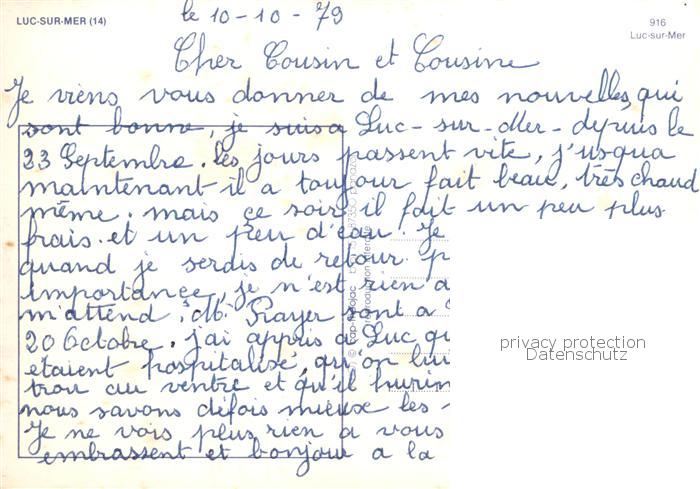 LUC-SUR-MER (14)
le 10-10-79
916
Luc-sur-Mer
Cher Cousin et Cousine
Je viens vous donner de mes nouvelles, qui
sont bonne, je suis a Luc-sur-Mer-depuis le
23 Septembre. les jours passent vite, j'usqua
maintenant il a toujour fait beau, très chaud
même. mais ce soir il fait un peu plus
frais. et un peu d'eau. Je
quand je serais de retour.
importance, je n'est rien a
m'attend. Mr Prayer sont a
20 Octobre. j'ai appris a Luc qu
étaient hospitalisé, qu'on lui
trou au ventre et qu'il
nous savons défois mieux les
Je ne vois plus rien a vous
embrassent et bonjour a la
privacy protection
Datenschutz